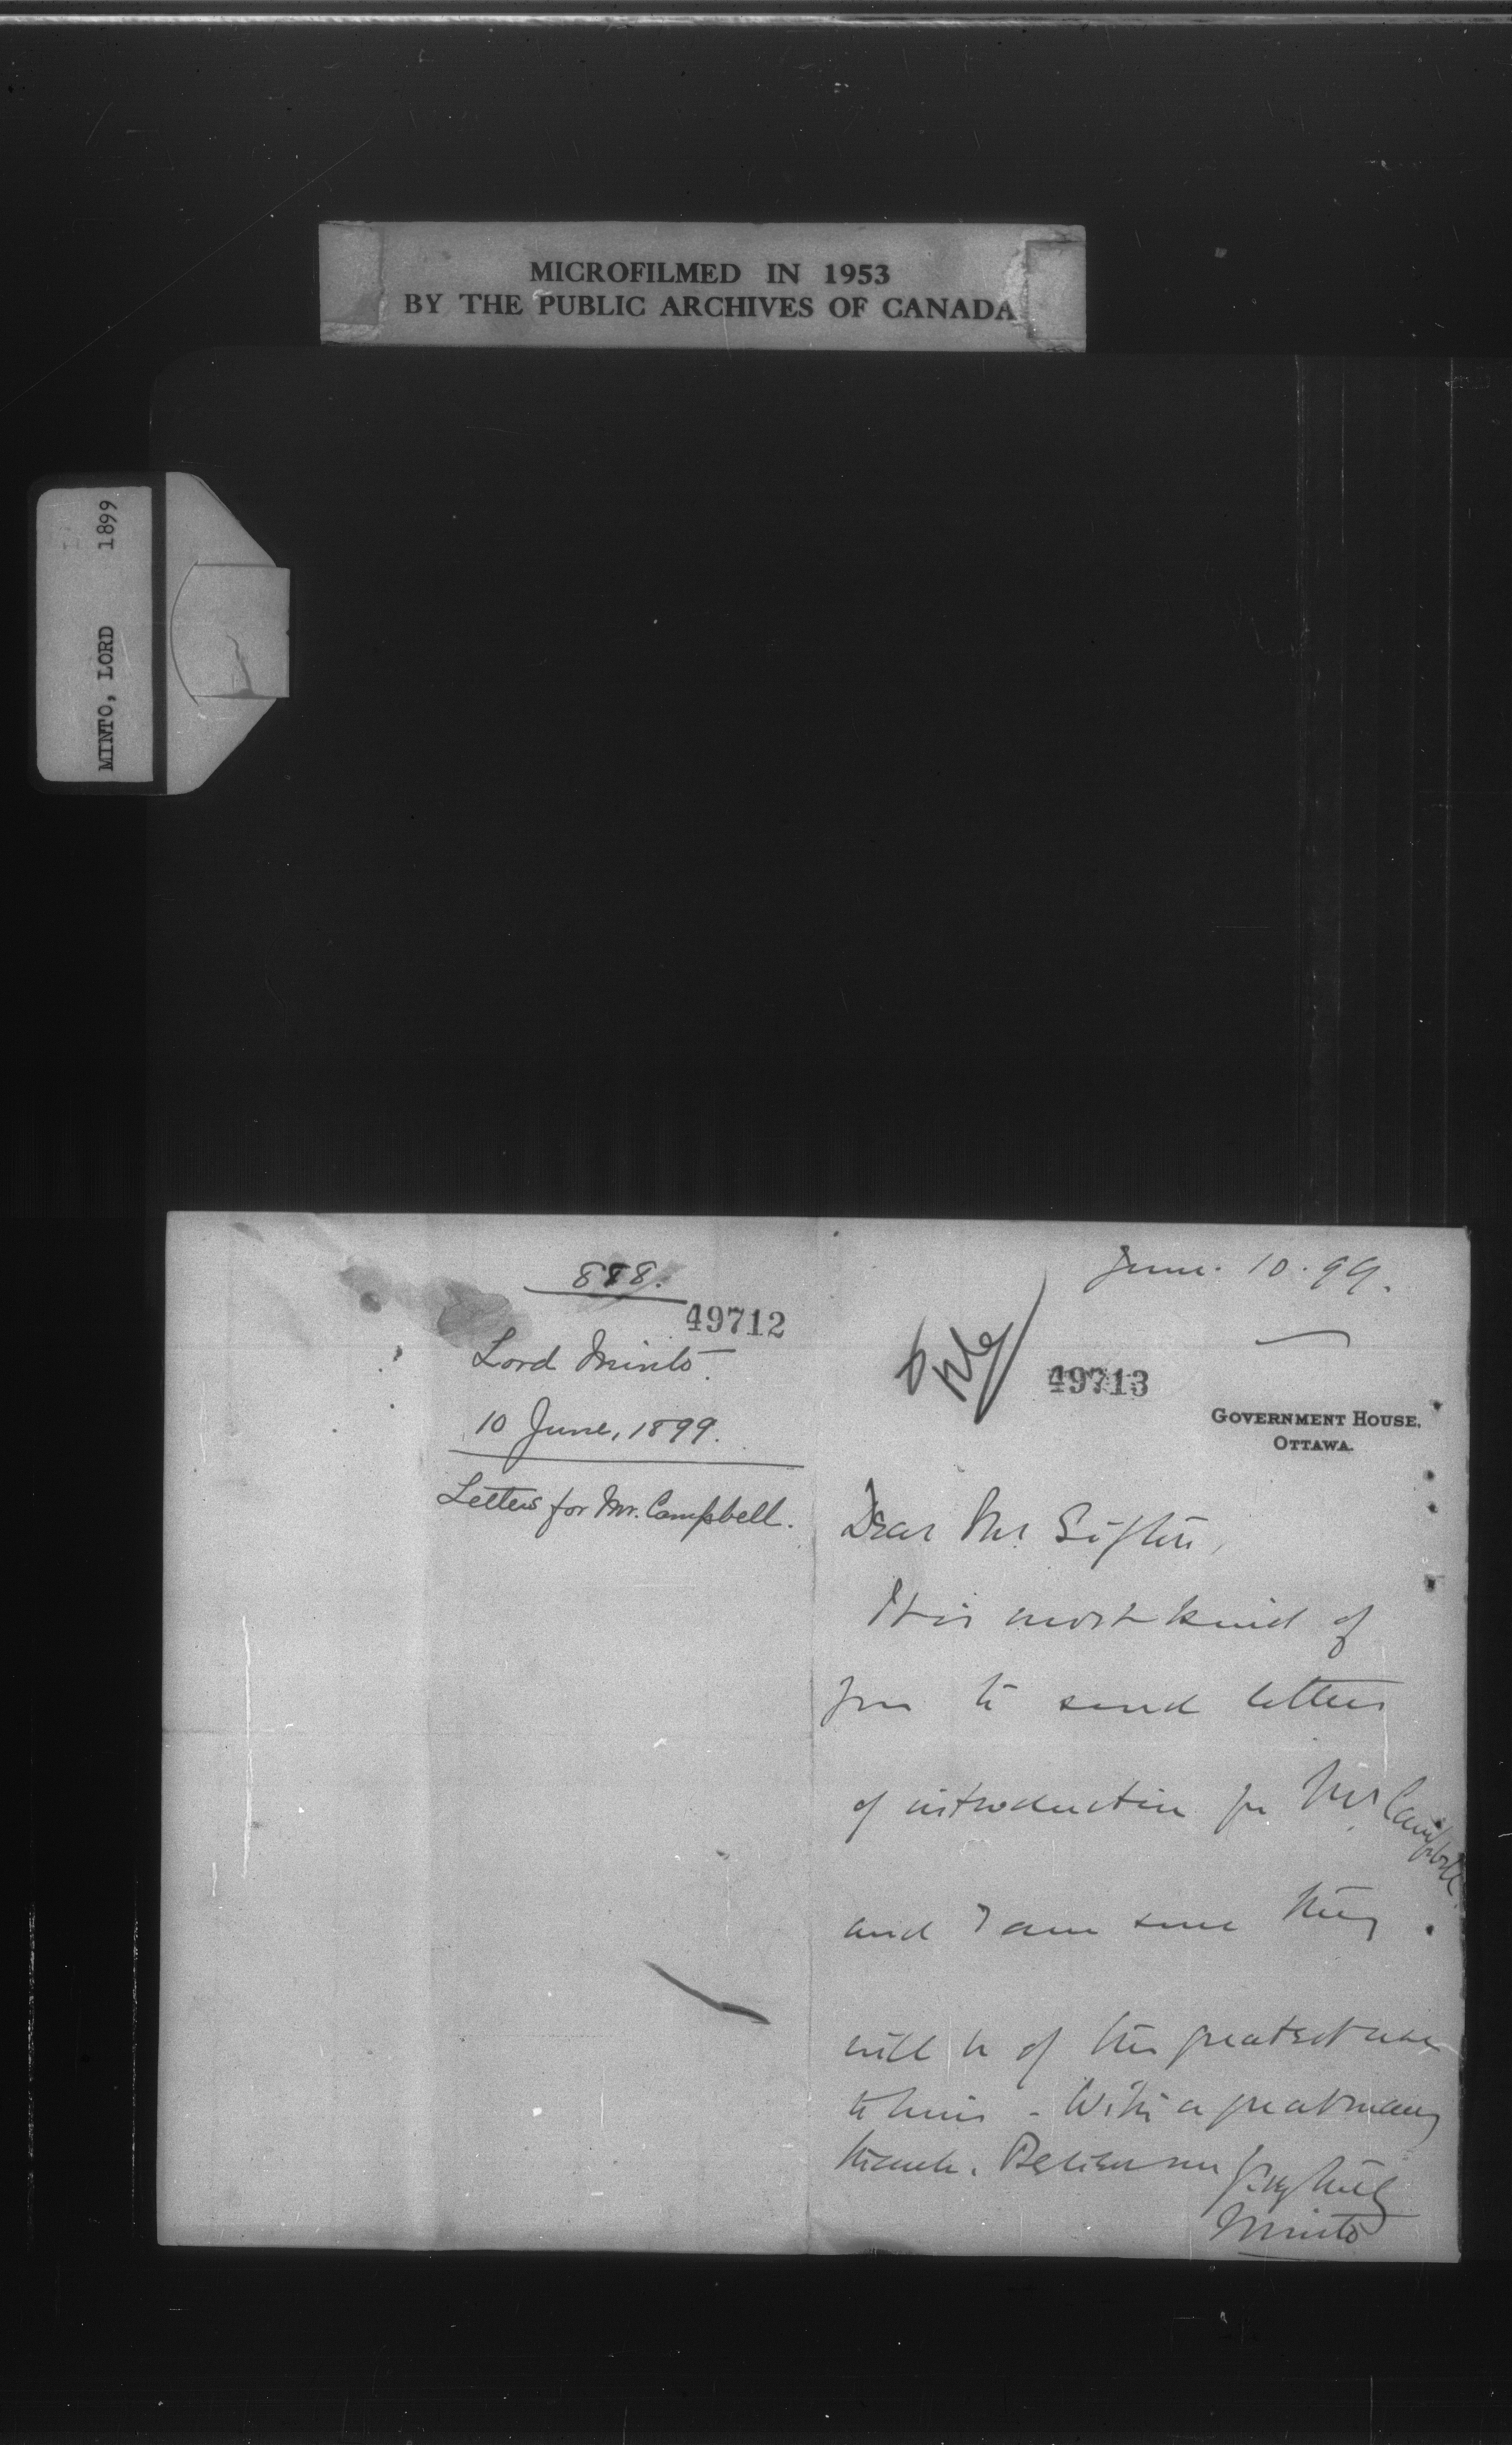 MICROFILMED IN 1953
BY THE PUBLIC ARCHIVES OF CANADA
MINTO, LORD 1899
888.
49712
Lord Minto.
10 June, 1899.
Letters for Mr. Campbell.
June. 10. 99.
49713
GOVERNMENT HOUSE,
OTTAWA.
Dear Mr Sifton,
It is most kind of
you to send letters
of introduction for Mr Campbell
and I am sure they
will be of the greatest use
to him - With a great many
thanks. Believe me
Minto